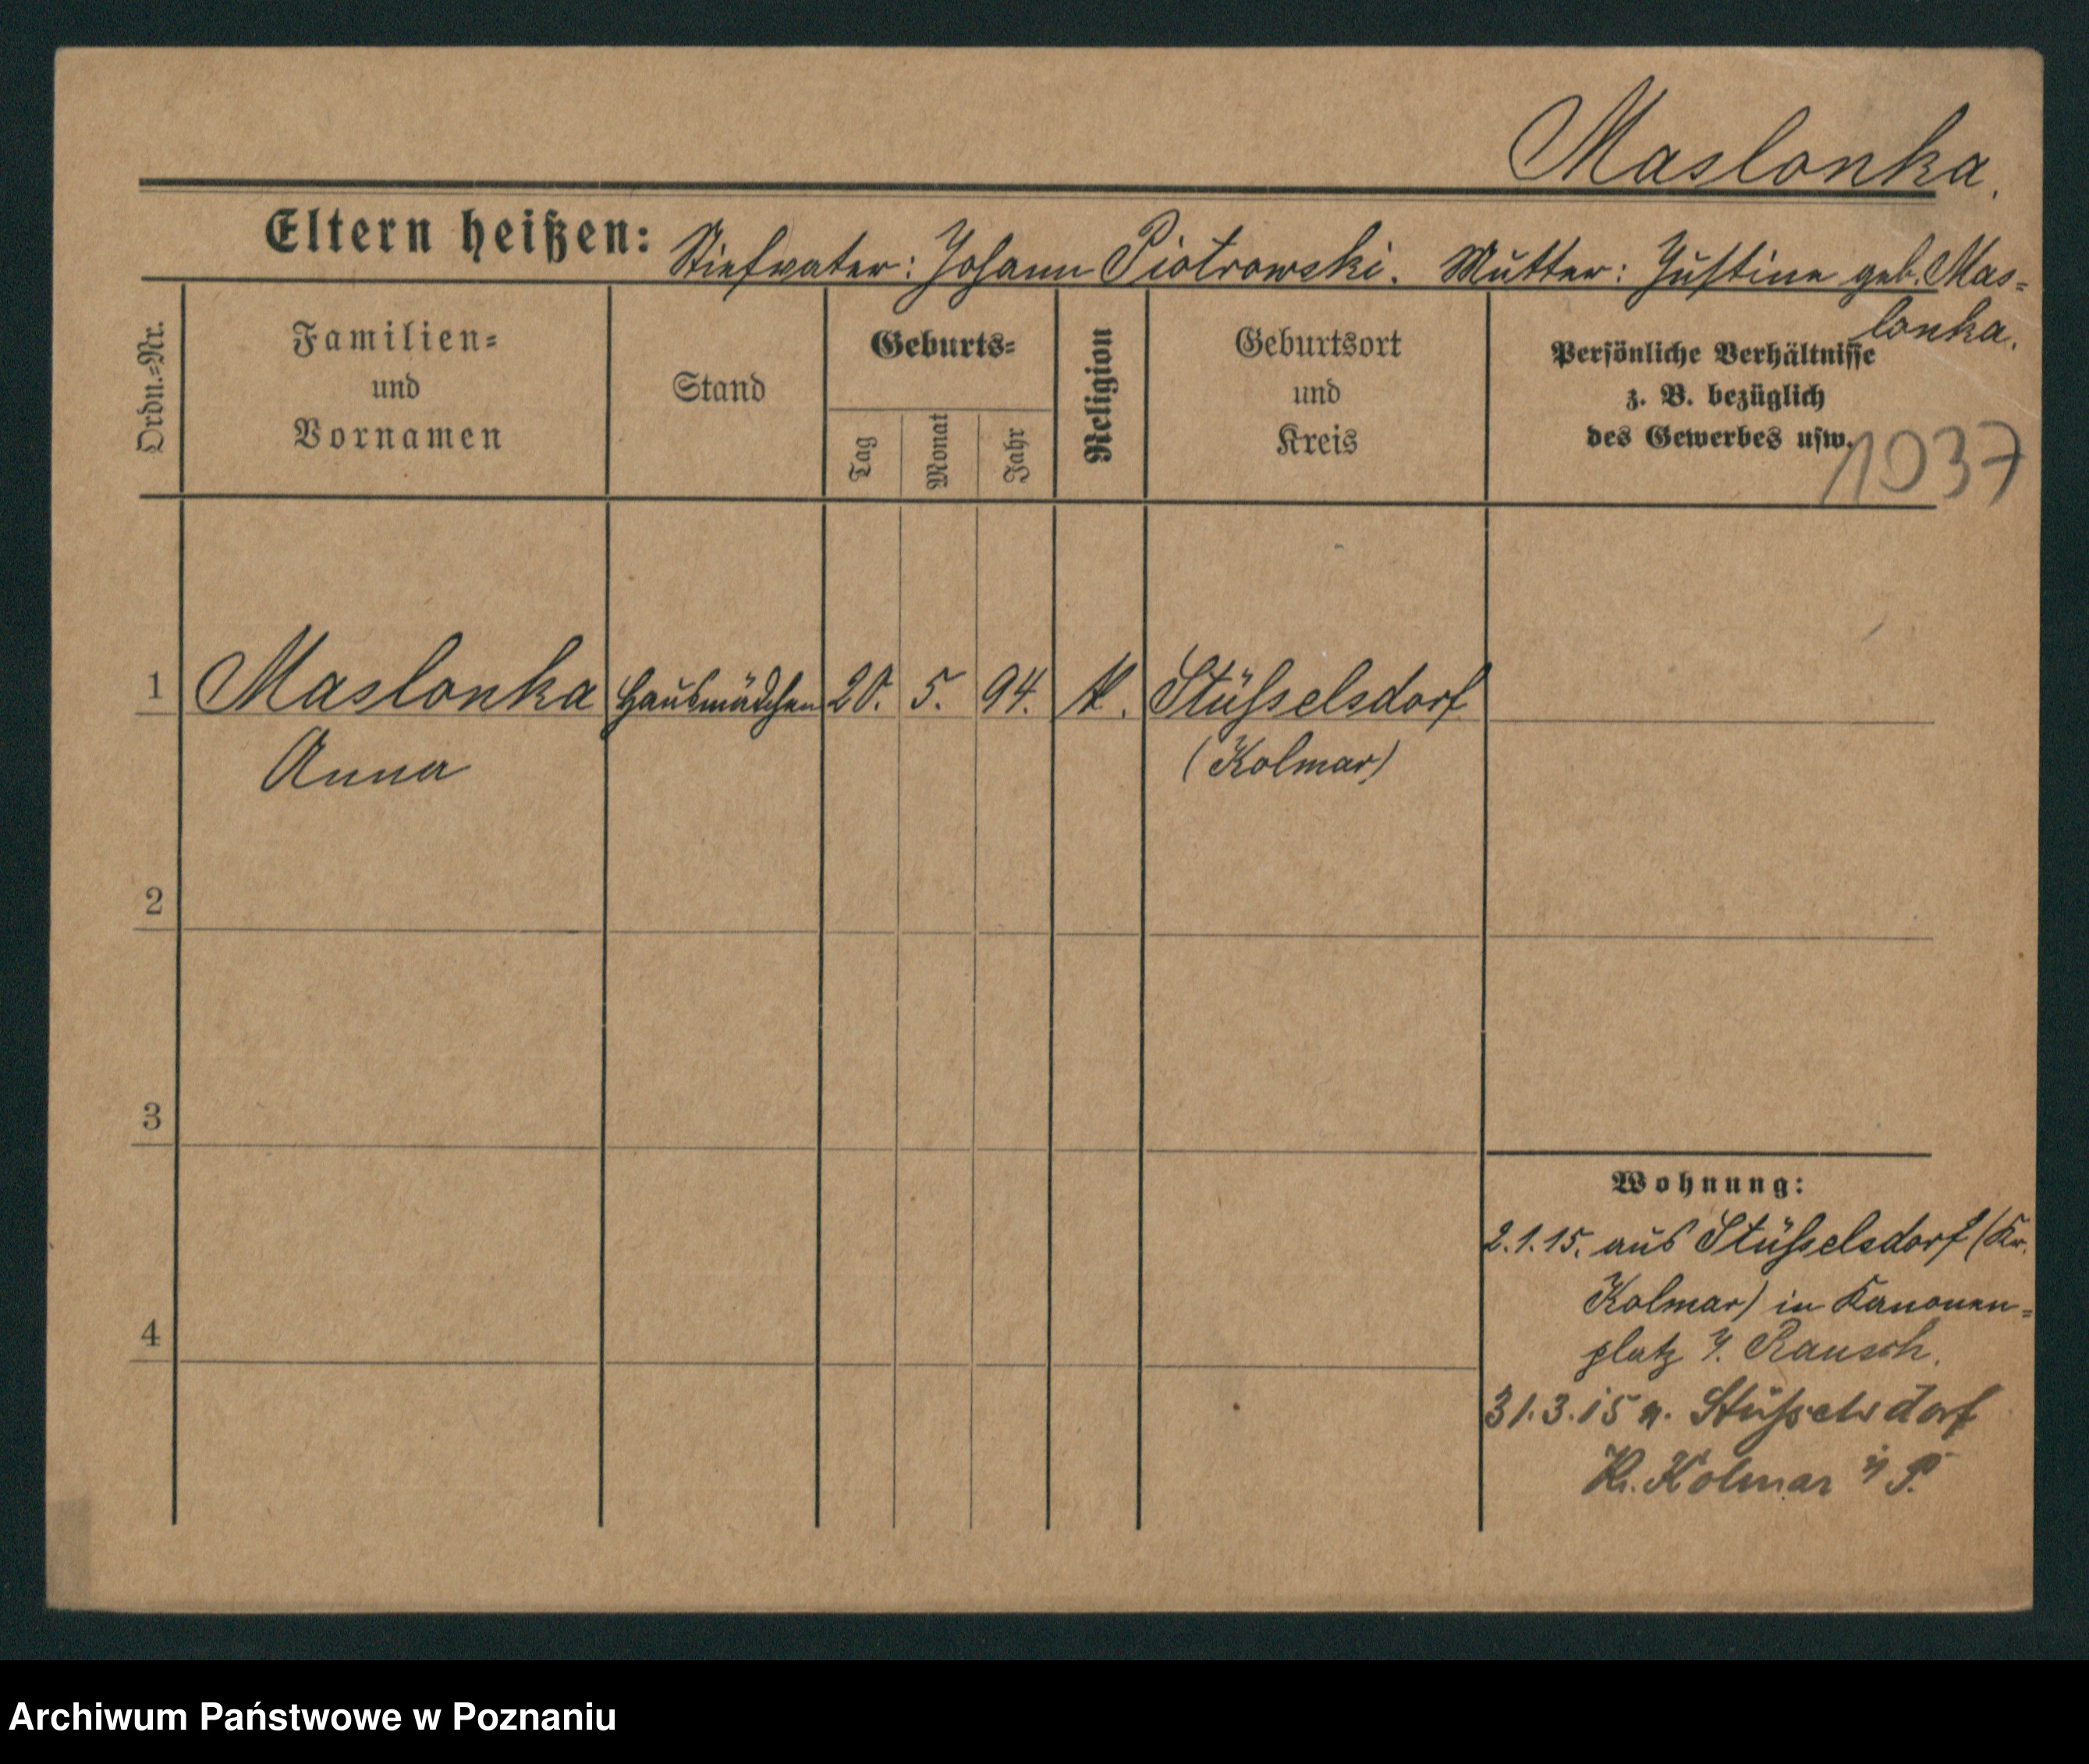 Maslonka.
Eltern heißen: Stiefvater: Johann Piotrowski. Mutter: Justine geb. Mas=
lonka.
Ordn.=Nr.
Familien=
und
Vornamen
Stand
Geburts=
Tag
Monat
Jahr
Religion
Geburtsort
und
Kreis
Persönliche Verhältnisse
z. B. bezüglich
des Gewerbes usw.
1037
1 Maslonka Hausmädchen 20. 5. 94. K. Stüsselsdorf
Anna (Kolmar)
2
3
4
Wohnung:
2.1.15. aus Stüsselsdorf (Kr.
Kolmar) in Kanonen=
platz Rausch.
31.3.15 n. Stüsselsdorf
Kr. Kolmar i P.
Archiwum Państwowe w Poznaniu